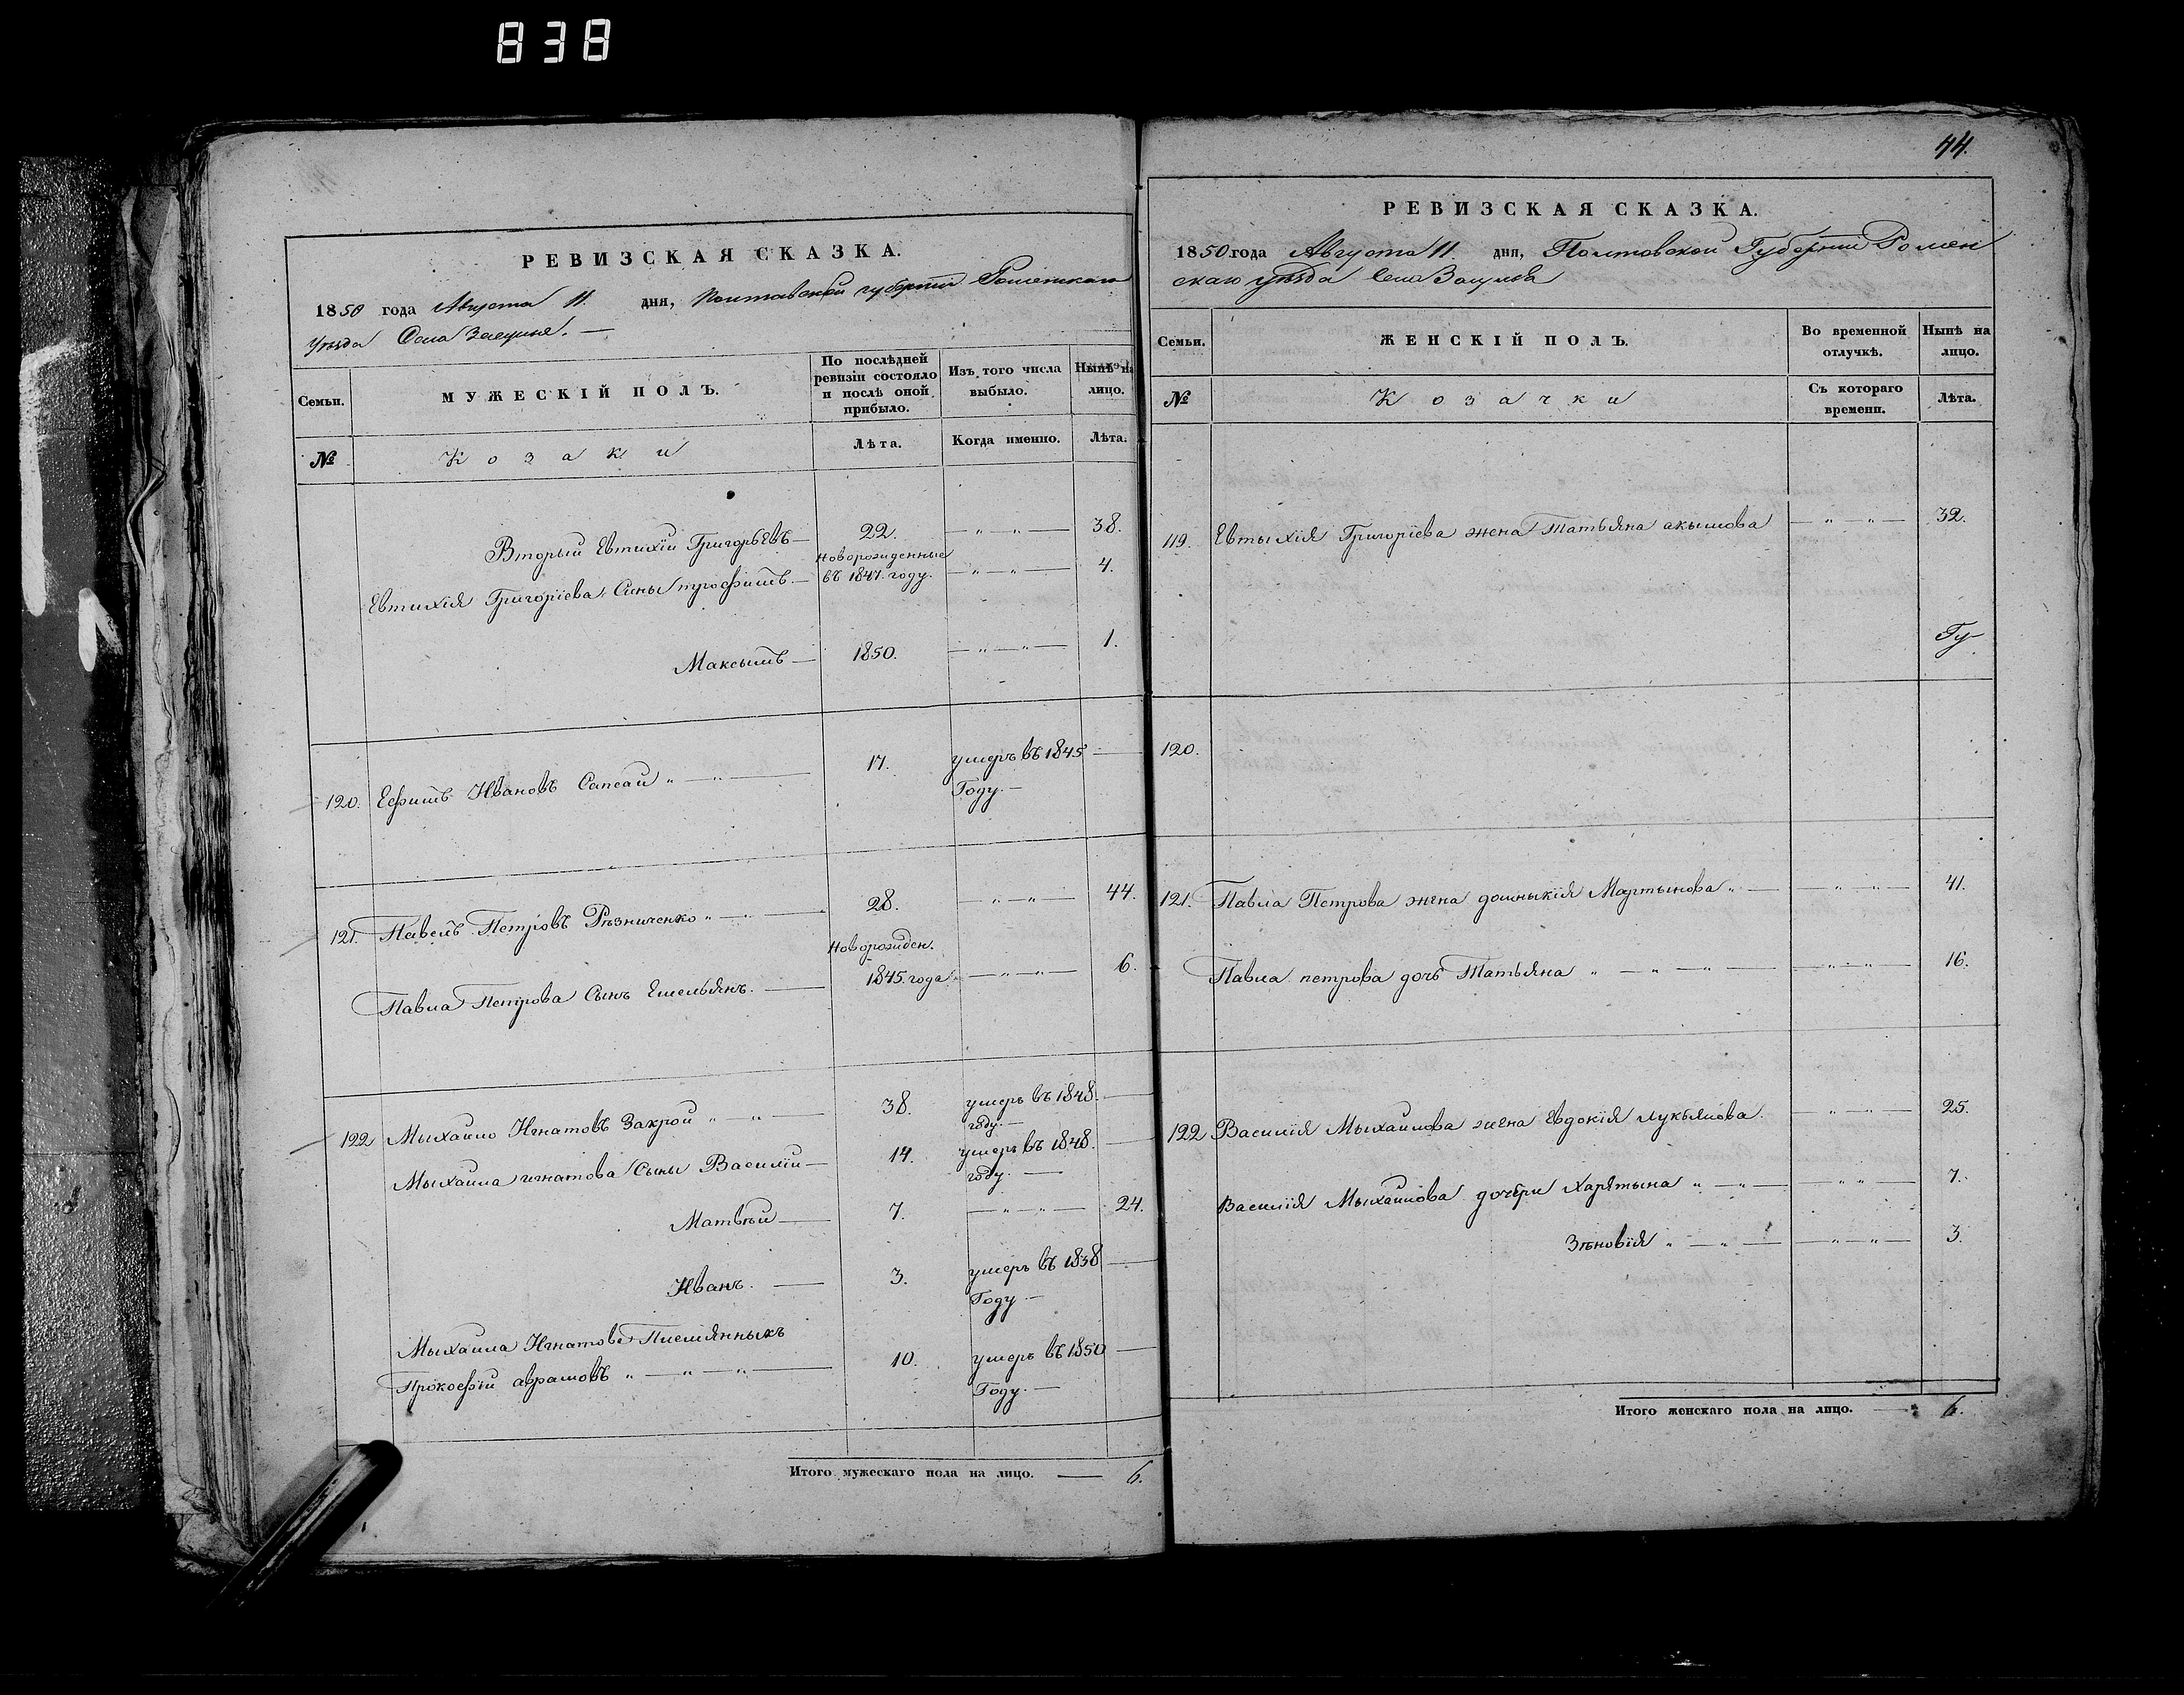 838
РЕВИЗСКАЯ СКАЗКА.
1850 года Августа 11. дня, Полтавской губернии Роменскаго
уѣзда Села
Семьи. МУЖЕСКІЙ ПОЛЪ. По послѣдней ревизіи состояло и послѣ оной прибыло. Изъ того числа выбыло. Нынѣ на лицо.
№ Козаки Лѣта. Когда именно. Лѣта.
Вторый Евтихій Григорьевъ — 22. — „ — „ — 38.
Новорожденные
Евтихія Григоріева Сины трофимъ — въ 1847. году. — „ — „ — 4.
Максымъ — 1850. — „ — „ — 1.
120. Ефимъ Ивановъ Сапсай „ — „ — 17. умеръ въ 1845 —
Году. —
121. Павелъ Петровъ Рѣзниченко „ — „ — 28. — „ — „ — 44.
Новорожден.
Павла Петрова Сынъ Емельянъ. — 1845. года. — „ — „ — 6.
122 Мыхайло Игнатовъ Закрой „ — „ — 38. умеръ въ 1848. —
году. —
Мыхайла игнатова Сыны Василій — 14. умеръ въ 1848. —
году. —
Матвѣй — 7. — „ — „ — 24.
Иванъ. — 3. умеръ въ 1838 —
Году —
Мыхайла Игнатова Племянныкъ
Прокофій аврамовъ „ — „ — „ — 10. умеръ въ 1850 —
Году. —
Итого мужескаго пола на лицо. — 6.
44.
РЕВИЗСКАЯ СКАЗКА.
1850 года Августа 11. дня, Полтовской Губерніи Ромен
скаго уѣзда Села
Семьи. ЖЕНСКІЙ ПОЛЪ. Во временной отлучкѣ. Нынѣ на лицо.
№ Козачки Съ котораго времени. Лѣта.
119. Евтыхія Григоріева жена Татьяна акымова — „ — „ — 32.
120.
121. Павла Петрова жена домныкія Мартынова „ — — „ — „ — 41.
Павла петрова дочь Татьяна „ — „ — „ — — „ — „ — 16.
122 Василія Мыхайлова жена Евдокія лукьянова. — „ — „ — 25.
Василія Мыхайлова дочери Харятына „ — „ — — „ — „ — 7.
Зѣновія „ — „ — — „ — „ — 3.
Итого женскаго пола на лицо. — 6.